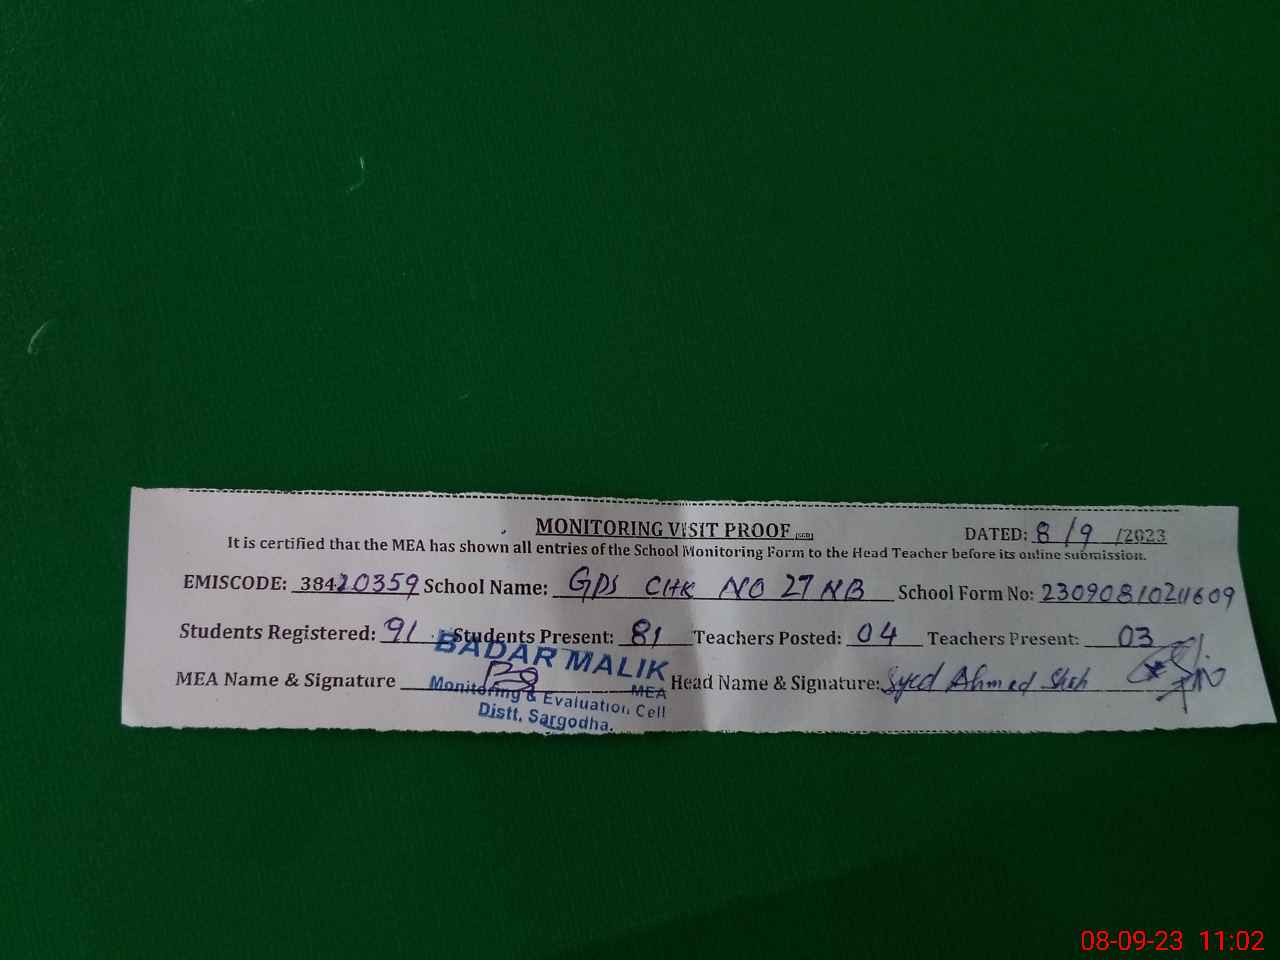 MONITORING VISIT PROOF
DATED: 8/9/2023
It is certified that the MEA has shown all entries of the School Monitoring Form to the Head Teacher before its online submission.
EMISCODE: 38420359 School Name: GPS CHK NO 27 NB School Form No:
Students Registered: 91 Students Present: 81 Teachers Posted: 04 Teachers Present: 03
MEA Name & Signature Head Name & Signature: Syed Ahmed Shah
BADAR MALIK
MEA
Monitoring & Evaluation Cell
Distt. Sargodha.
08-09-23 11:02